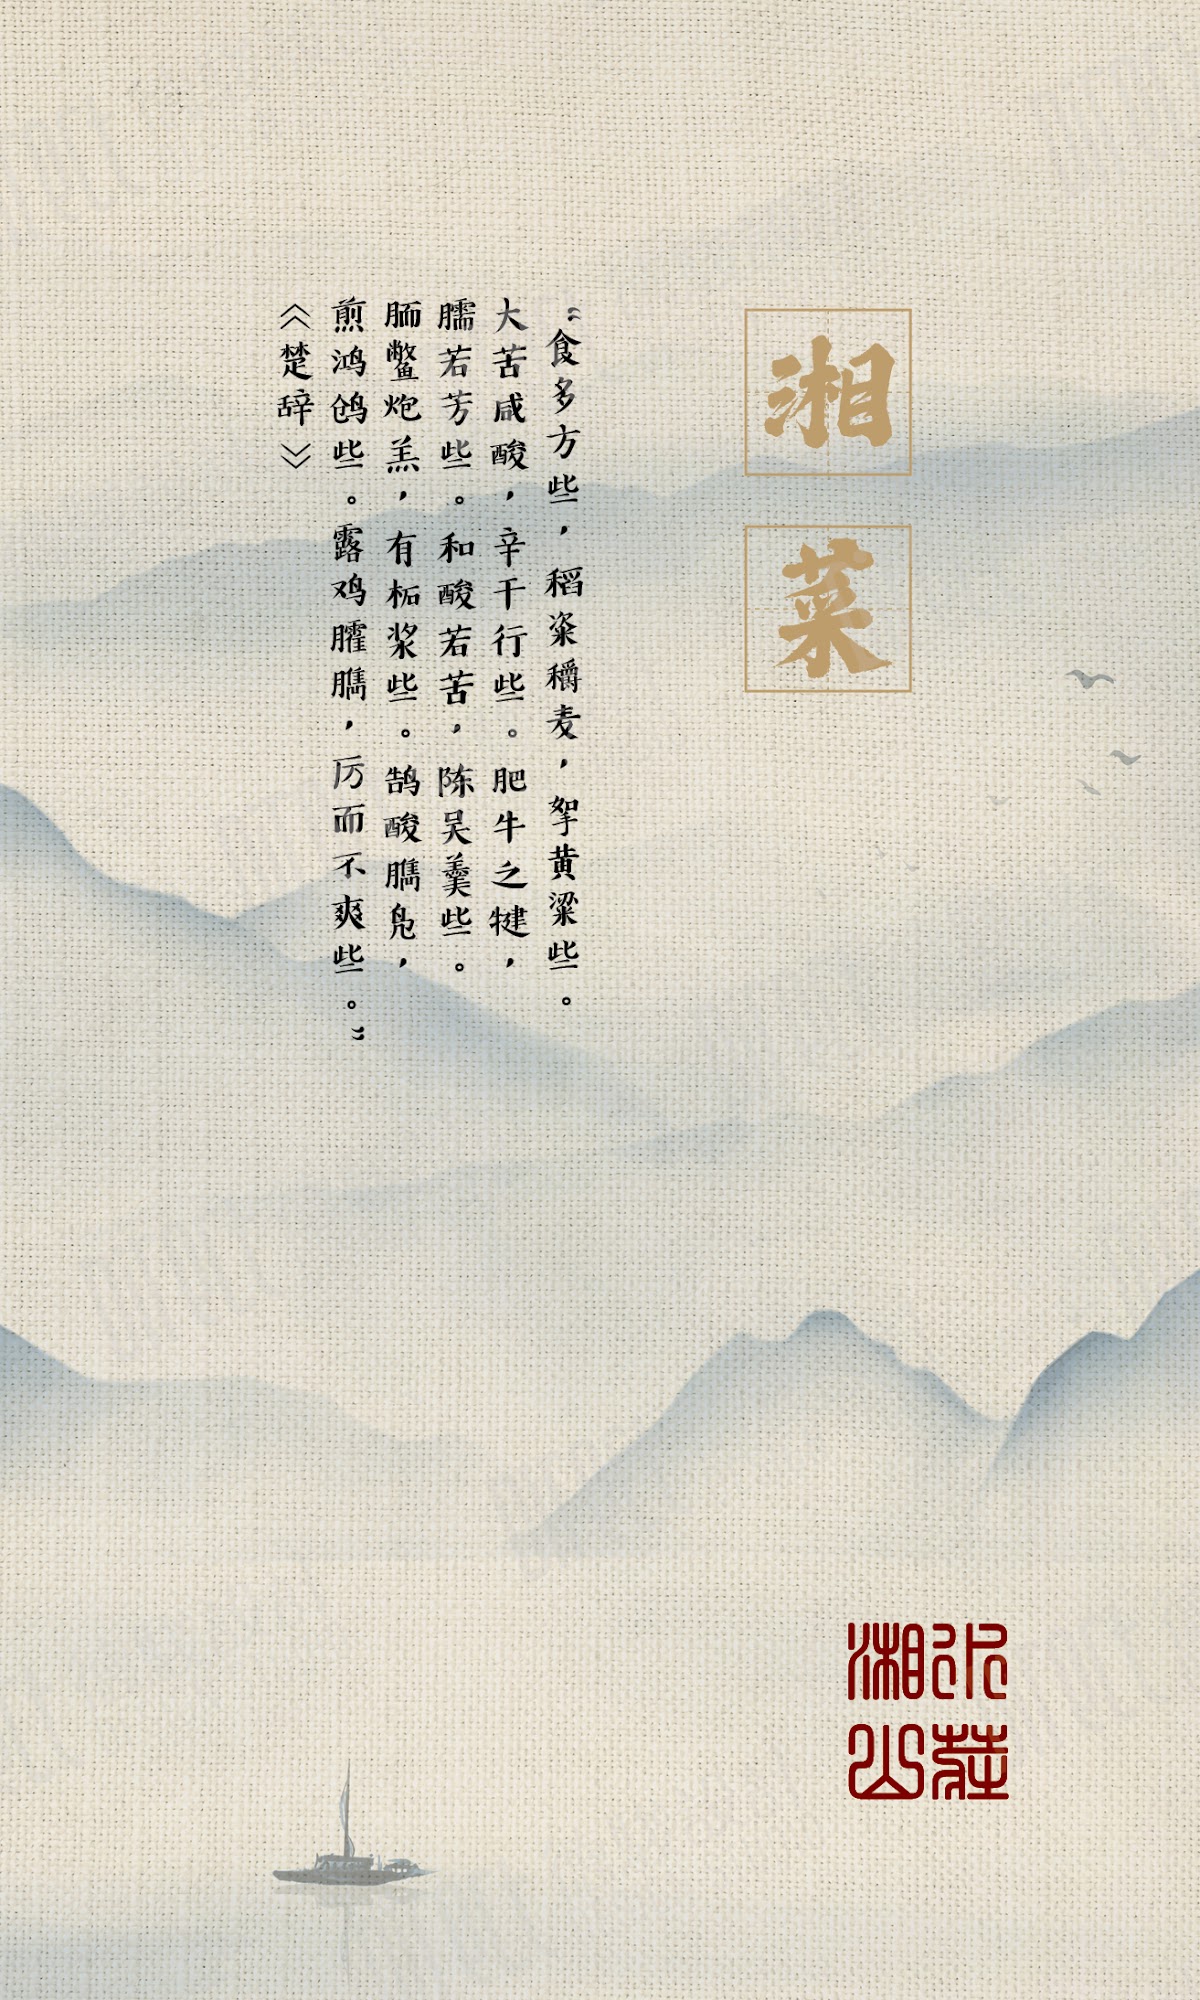 湘菜
“食多方些，稻粢穱麦，挐黄粱些。
大苦咸酸，辛干行些。肥牛之犍，
臑若芳些。和酸若苦，陈吴羹些。
胹鳖炮羔，有柘浆些。鹄酸臇凫，
煎鸿鸧些。露鸡臛臇，厉而不爽些。”
《楚辞》
湘
山莊